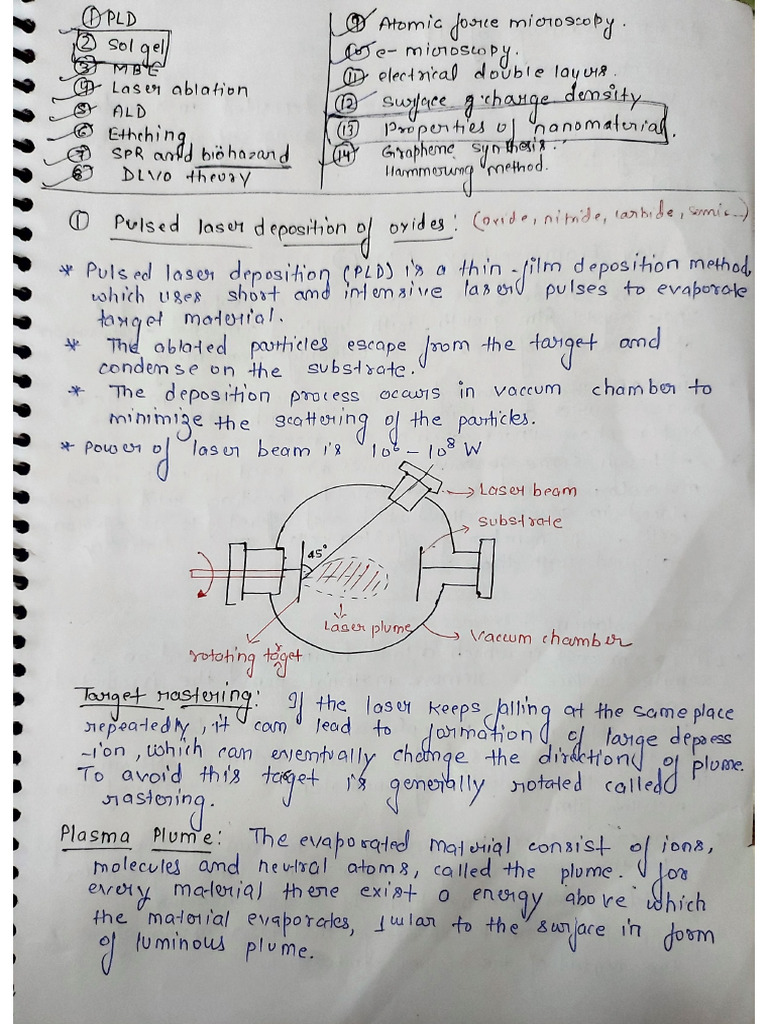 ① PLD
② Sol gel
③ MBE
④ Laser ablation
⑤ ALD
⑥ Ethching
⑦ SPR and biohazard
⑧ DLVO theory
⑨ Atomic force microscopy.
⑩ e- microscopy.
⑪ electrical double layers.
⑫ Surface charge density
⑬ Properties of nanomaterial.
⑭ Graphene synthesis.
Hammerung method.
① Pulsed laser deposition of oxides: (oxide, nitride, carbide, semic...)
* Pulsed laser deposition (PLD) is a thin-film deposition method,
which uses short and intensive laser pulses to evaporate
target material.
* The ablated particles escape from the target and
condense on the substrate.
* The deposition process occurs in vaccum chamber to
minimize the scattering of the particles.
* Power of laser beam is 10⁶ - 10⁸ W
Laser beam
Substrate
45°
Laser plume
Vaccum chamber
rotating target
Target rastering: If the laser keeps falling at the same place
repeatedly, it can lead to formation of large depress
-ion, which can eventually change the direction of plume.
To avoid this target is generally rotated called
rastering.
Plasma Plume: The evaporated material consist of ions,
molecules and neutral atoms, called the plume. for
every material there exist a energy above which
the material evaporates, ⊥ular to the surface in form
of luminous plume.